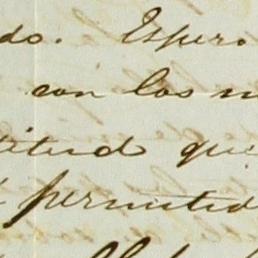 do. Espero
con los m
titud que
permitid